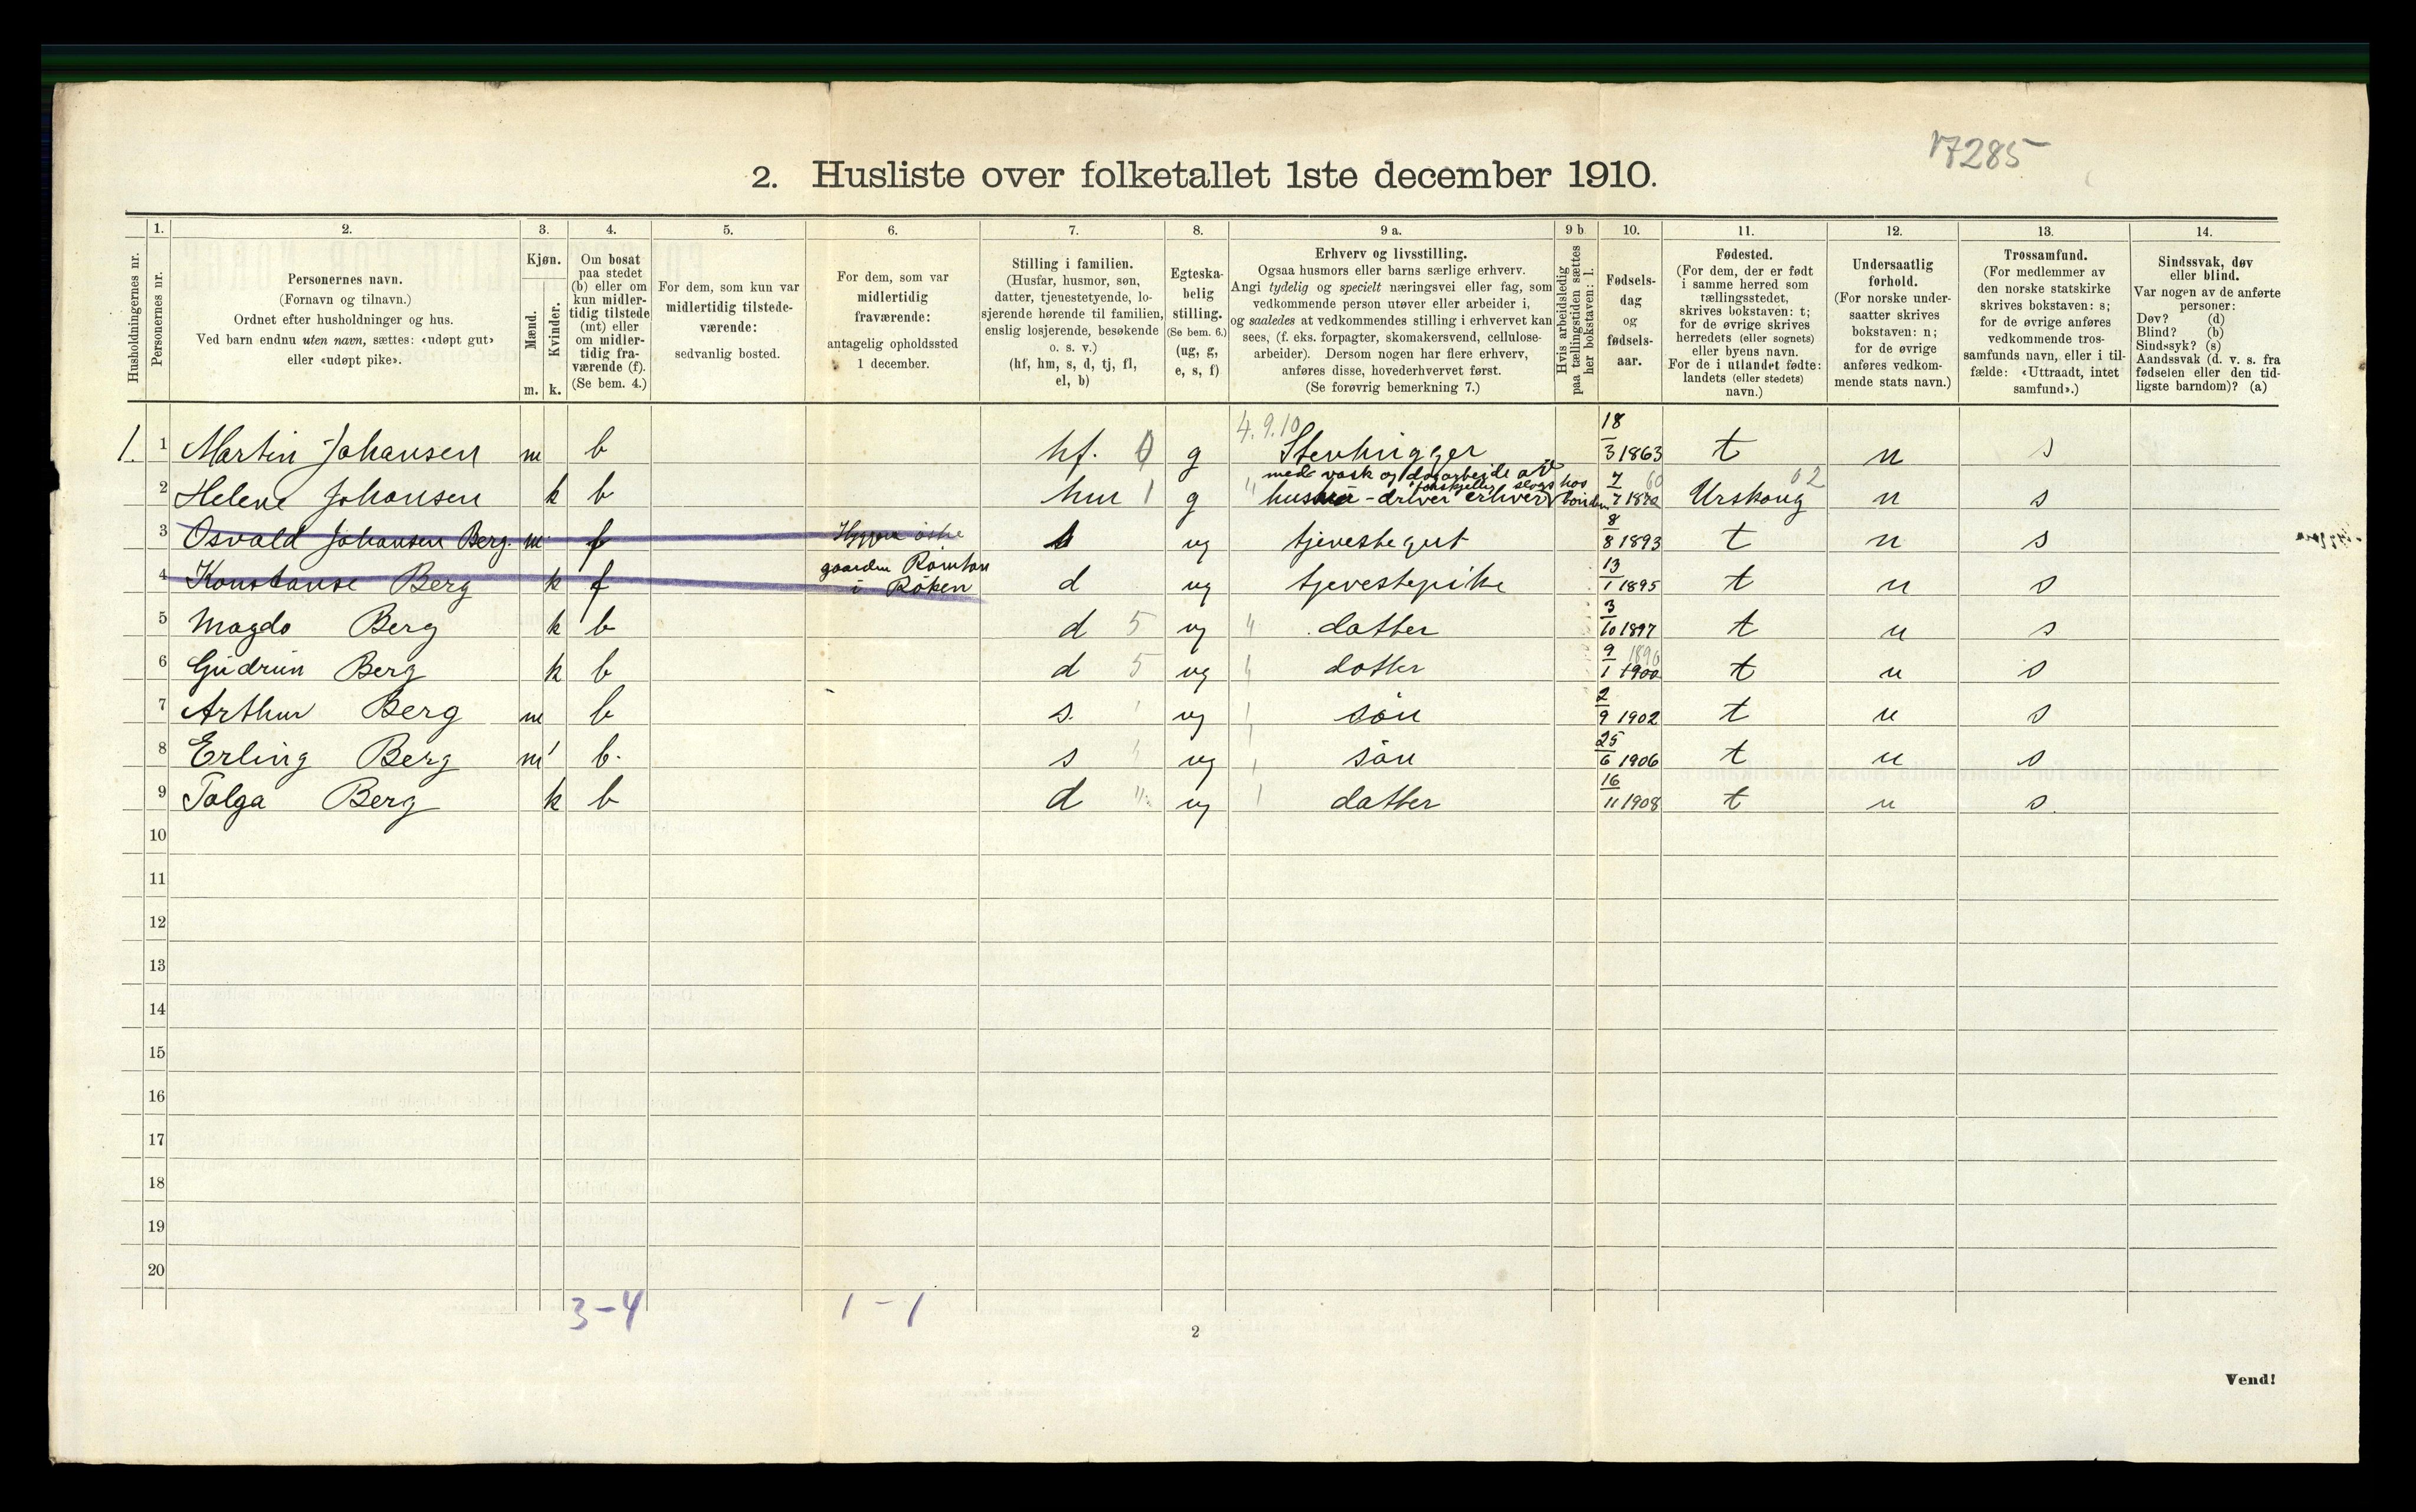 17285
2. Husliste over folketallet 1ste december 1910.
Husholdningernes nr.
1.
Personernes nr.
2.
Personernes navn.
(Fornavn og tilnavn.)
Ordnet efter husholdninger og hus.
Ved barn endnu uten navn, sættes: «udøpt gut»
eller «udøpt pike».
3.
Kjøn.
Mænd.
Kvinder.
m. k.
4.
Om bosat
paa stedet
(b) eller om
kun midler-
tidig tilstede
(mt) eller
om midler-
tidig fra-
værende (f).
(Se bem. 4.)
5.
For dem, som kun var
midlertidig tilstede-
værende:
sedvanlig bosted.
6.
For dem, som var
midlertidig
fraværende:
antagelig opholdssted
1 december.
7.
Stilling i familien.
(Husfar, husmor, søn,
datter, tjenestetyende, lo-
sjerende hørende til familien,
enslig losjerende, besøkende
o. s. v.)
(hf, hm, s, d, tj, fl,
el, b)
8.
Egteska-
belig
stilling.
(Se bem. 6.)
(ug, g,
e, s, f)
9 a.
Erhverv og livsstilling.
Ogsaa husmors eller barns særlige erhverv.
Angi tydelig og specielt næringsvei eller fag, som
vedkommende person utøver eller arbeider i,
og saaledes at vedkommendes stilling i erhvervet kan
sees, (f. eks. forpagter, skomakersvend, cellulose-
arbeider). Dersom nogen har flere erhverv,
anføres disse, hovederhvervet først.
(Se forøvrig bemerkning 7.)
9 b
Hvis arbeidsledig
paa tællingstiden sættes
her bokstaven: l.
10.
Fødsels-
dag
og
fødsels-
aar.
11.
Fødested.
(For dem, der er født
i samme herred som
tællingsstedet,
skrives bokstaven: t;
for de øvrige skrives
herredets (eller sognets)
eller byens navn.
For de i utlandet fødte:
landets (eller stedets)
navn.)
12.
Undersaatlig
forhold.
(For norske under-
saatter skrives
bokstaven: n;
for de øvrige
anføres vedkom-
mende stats navn.)
13.
Trossamfund.
(For medlemmer av
den norske statskirke
skrives bokstaven: s;
for de øvrige anføres
vedkommende tros-
samfunds navn, eller i til-
fælde: «Uttraadt, intet
samfund».)
14.
Sindssvak, døv
eller blind.
Var nogen av de anførte
personer:
Døv? (d)
Blind? (b)
Sindssyk? (s)
Aandssvak (d. v. s. fra
fødselen eller den tid-
ligste barndom)? (a)
4.9.10
1. 1 Martin Johansen m b hf. 0 g Stenhugger 18/3 1863 t n s
med vask og dagarbeide av
forskjellig slags hos
2 Helene Johansen k b hm 1 g driver erhverv 7/7 Urskoug 02 n s
3 Osvald Johansen Berg. m f s ug tjenestegut 8/8 1893 t n s
gaarden
4 Konstanse Berg k f i Röken d ug tjenestepike 13/1 1895 t n s
5 Magda Berg k b d 5 ug datter 3/10 1897 t n s
6 Gudrun Berg k b d 5 ug datter 9/1 1900 t n s
7 Arthur Berg m b s. ug sön 2/9 1902 t n s
8 Erling Berg m b. s ug sön 25/6 1906 t n s
9 Tolga Berg k b d ug datter 16/11 1908 t n s.
10
11
12
13
14
15
16
17
18
19
20
3-4 1-1
2
Vend!